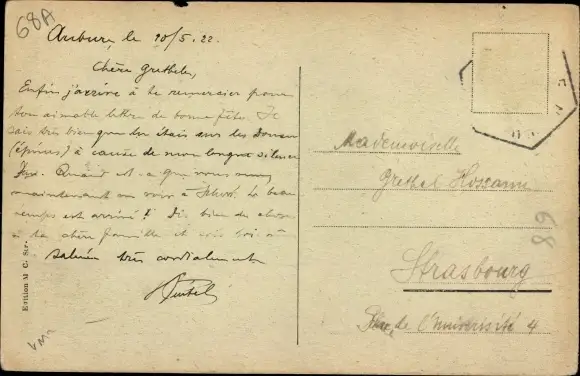 68A
Aubure, le 20/5.22.
Chère Grethele,
Enfin j'arrive à te remercier pour
ton aimable lettre de bonne fête. Je
sais très bien que tu étais sur les
(épines) à cause de mon longue silence
Quand est-ce que vous
maintenant au voir à Le beau
temps est arrivé! Dis bien de choses
à ta chère famille et toi
saluée très cordialement
Edition M C. Str.
Mademoiselle
Grethel Hossann
Strasbourg
Place de l'Université 4
68